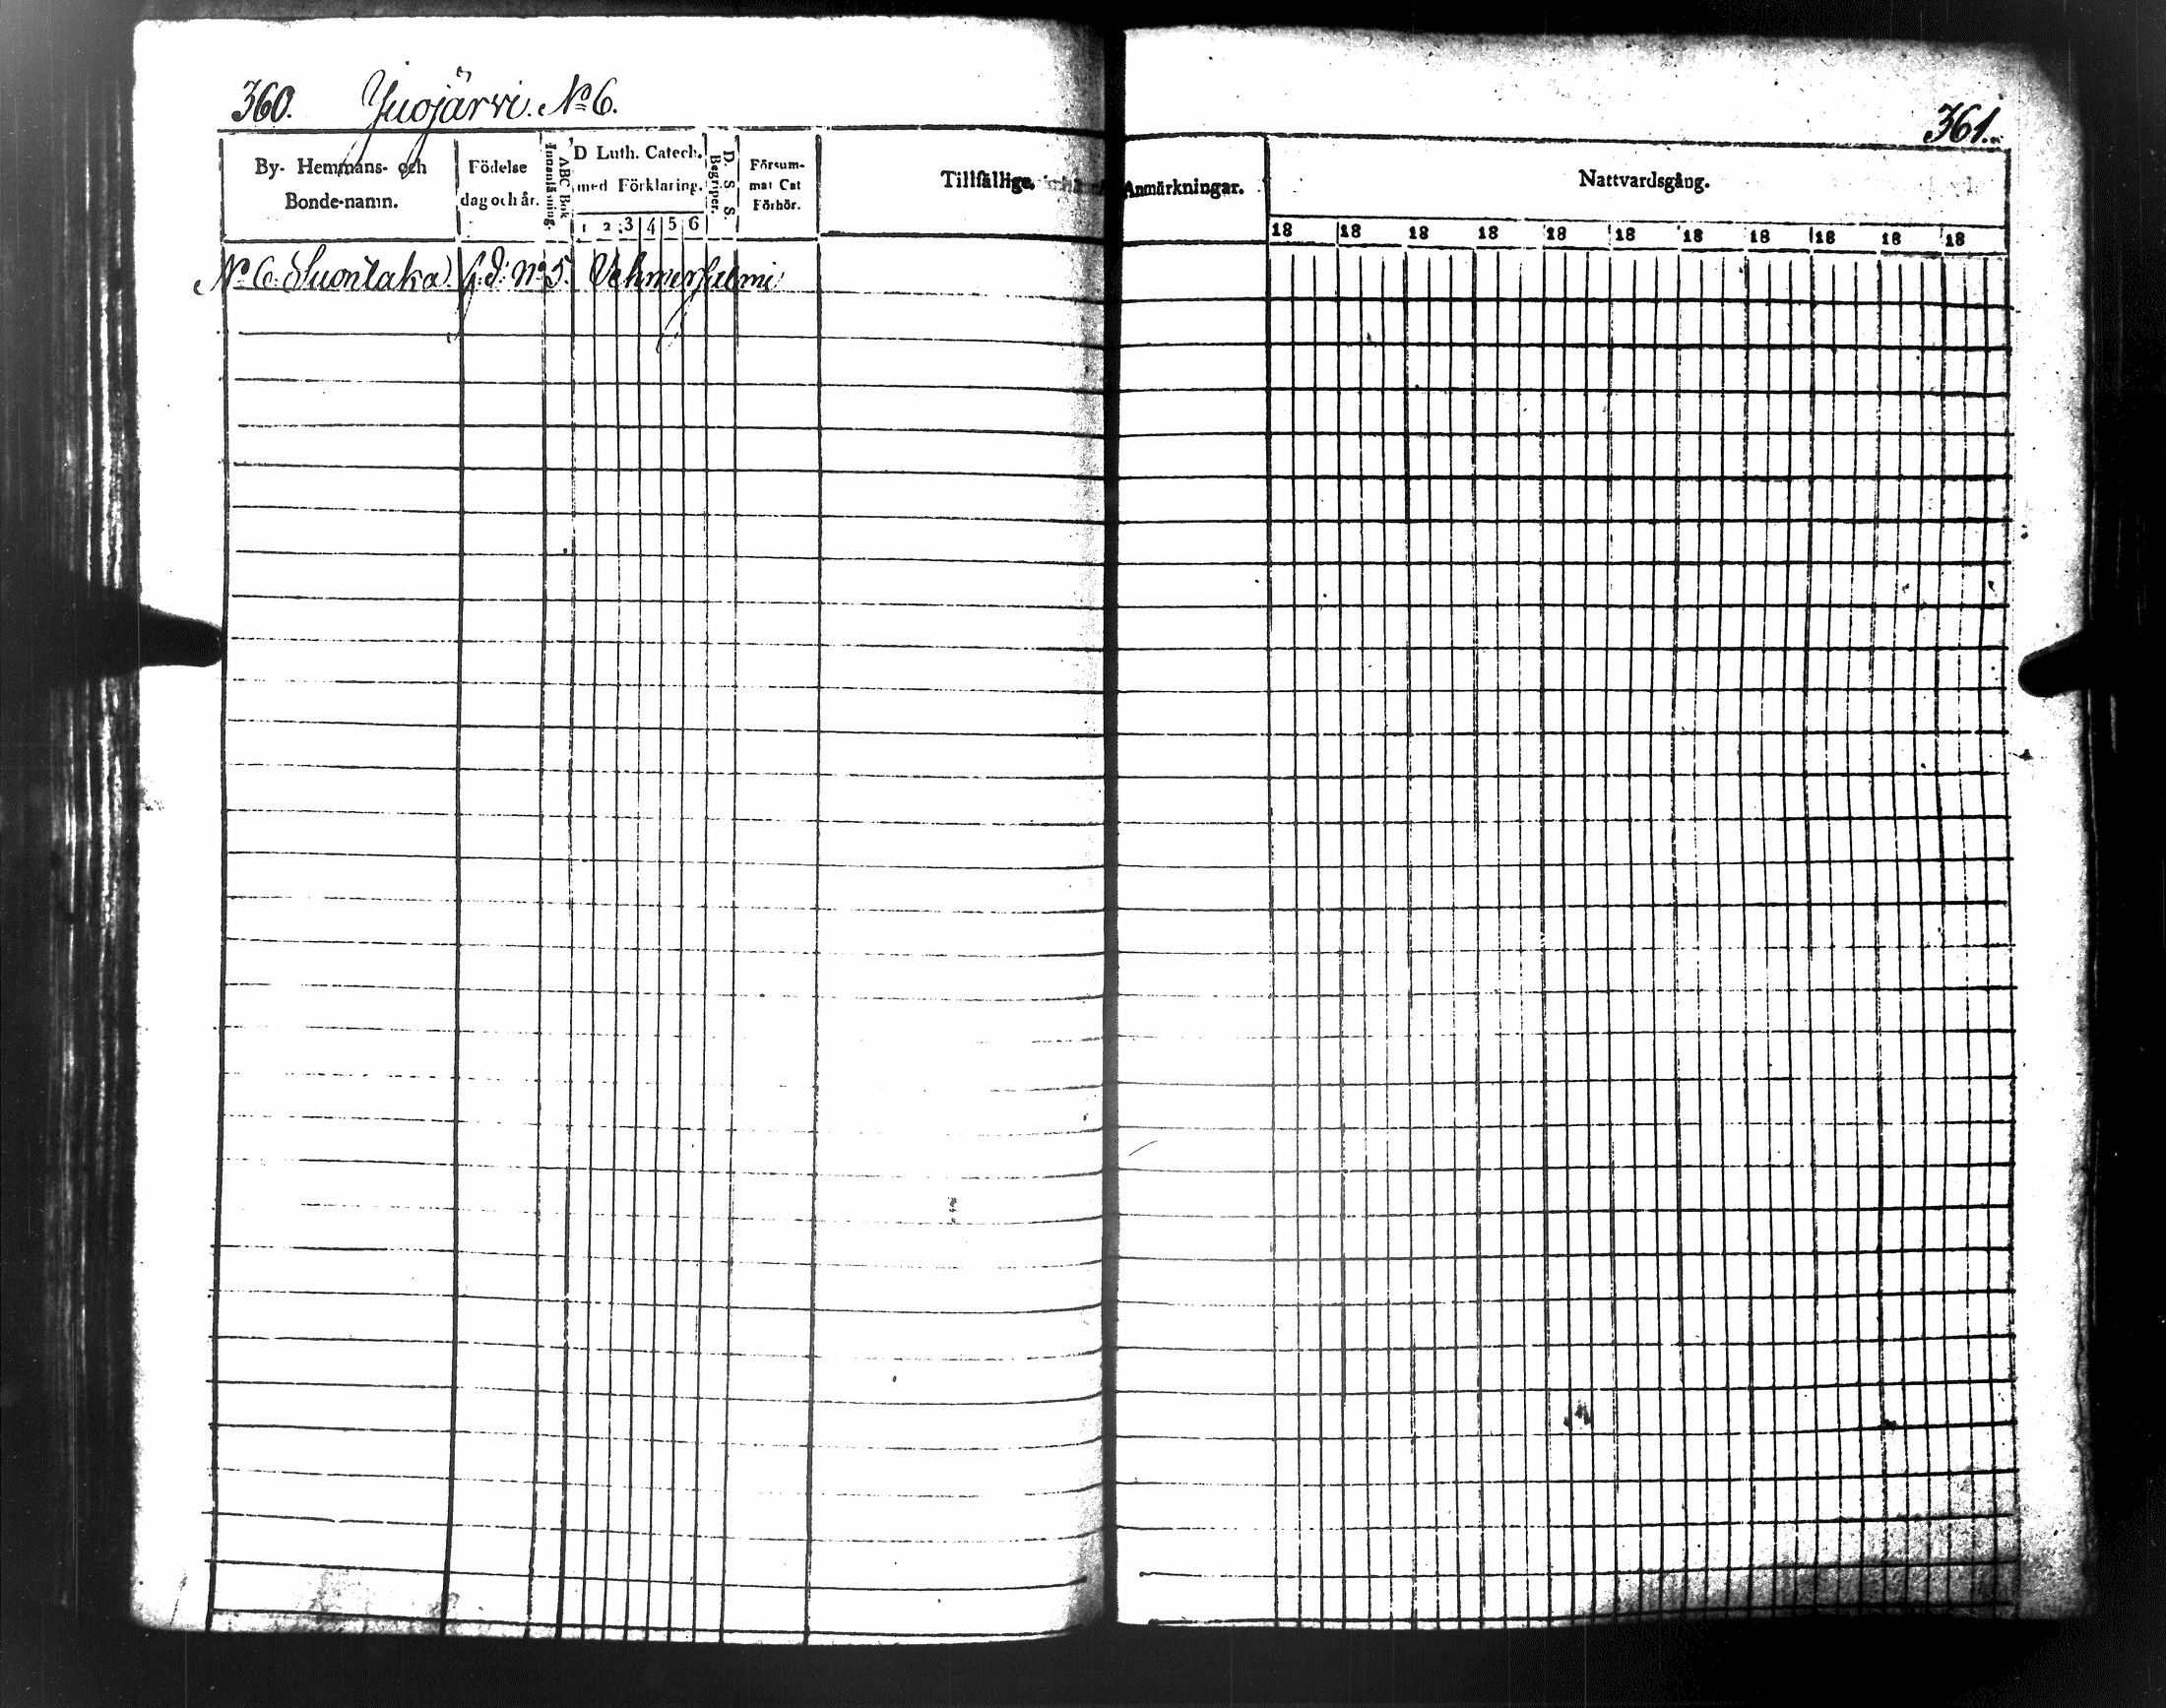 360. Juojärvi. No 6.
361.
By- Hemmans- och Bonde-namn.
Födelse dag och år.
ABC Bok Innanläsning.
D Luth. Catech. med Förklaring.
1 2 3 4 5 6
D. S. S. Begriper.
Försum- mat Cat Förhör.
Tillfällige Anmärkningar.
Nattvardsgång.
18 18 18 18 18 18 18 18 18 18 18
No 6. Suontaka No 5. Vehmersalmi